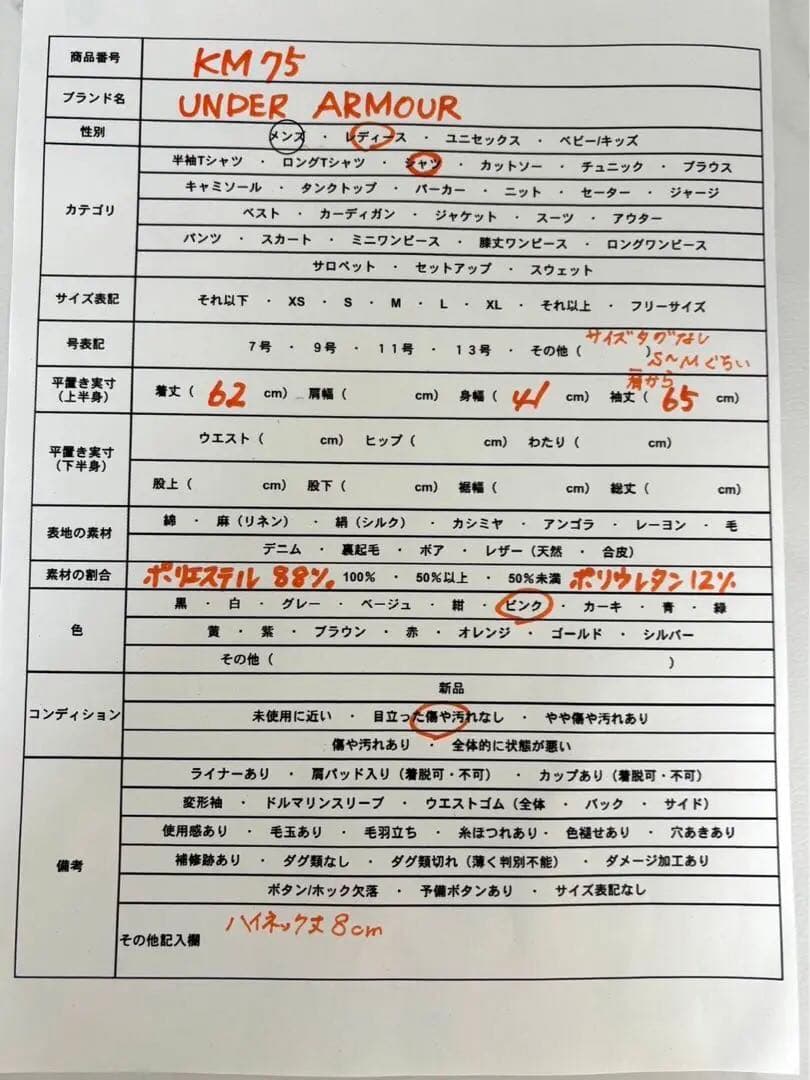 商品番号 KM75
ブランド名 UNDER ARMOUR
性別 メンズ ・ レディース ・ ユニセックス ・ ベビー/キッズ
カテゴリ
半袖Tシャツ ・ ロングTシャツ ・ シャツ ・ カットソー ・ チュニック ・ ブラウス
キャミソール ・ タンクトップ ・ パーカー ・ ニット ・ セーター ・ ジャージ
ベスト ・ カーディガン ・ ジャケット ・ スーツ ・ アウター
パンツ ・ スカート ・ ミニワンピース ・ 膝丈ワンピース ・ ロングワンピース
サロペット ・ セットアップ ・ スウェット
サイズ表記 それ以下 ・ XS ・ S ・ M ・ L ・ XL ・ それ以上 ・ フリーサイズ
サイズタグなし
号表記 7号 ・ 9号 ・ 11号 ・ 13号 ・ その他 ( )
S〜Mぐらい
肩から
平置き実寸 (上半身) 着丈 ( 62 cm) 肩幅 ( cm) 身幅 ( 41 cm) 袖丈 ( 65 cm)
平置き実寸 (下半身)
ウエスト ( cm) ヒップ ( cm) わたり ( cm)
股上 ( cm) 股下 ( cm) 裾幅 ( cm) 総丈 ( cm)
表地の素材
綿 ・ 麻 (リネン) ・ 絹 (シルク) ・ カシミヤ ・ アンゴラ ・ レーヨン ・ 毛
デニム ・ 裏起毛 ・ ボア ・ レザー (天然 ・ 合皮)
素材の割合 ポリエステル 88% 100% ・ 50%以上 ・ 50%未満 ポリウレタン12%
色
黒 ・ 白 ・ グレー ・ ベージュ ・ 紺 ・ ピンク ・ カーキ ・ 青 ・ 緑
黄 ・ 紫 ・ ブラウン ・ 赤 ・ オレンジ ・ ゴールド ・ シルバー
その他 ( )
コンディション
新品
未使用に近い ・ 目立った傷や汚れなし ・ やや傷や汚れあり
傷や汚れあり ・ 全体的に状態が悪い
備考
ライナーあり ・ 肩パッド入り (着脱可・不可) ・ カップあり (着脱可・不可)
変形袖 ・ ドルマリンスリーブ ・ ウエストゴム (全体 ・ バック ・ サイド)
使用感あり ・ 毛玉あり ・ 毛羽立ち ・ 糸ほつれあり・ 色褪せあり ・ 穴あきあり
補修跡あり ・ ダグ類なし ・ ダグ類切れ (薄く判別不能) ・ ダメージ加工あり
ボタン/ホック欠落 ・ 予備ボタンあり ・ サイズ表記なし
ハイネック丈8cm
その他記入欄